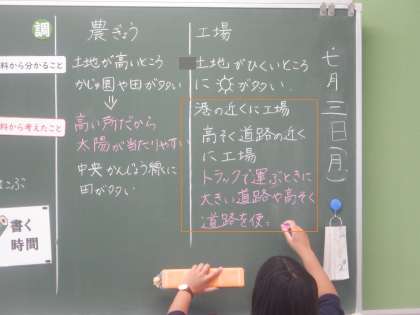 七月三日(月)
調
農ぎょう
工場
料から分かること
土地が高いところ
かじゅ園や田が多い
高い所だから
太陽が当たりやすい
中央かんじょう線ぞいに
田が多い
土地がひくいところ
に☼が多い
港の近くに工場
高そく道路の近く
に工場
トラックで運ぶときに
大きい道路や高そく
道路を使
料から考えたこと
書く
時間